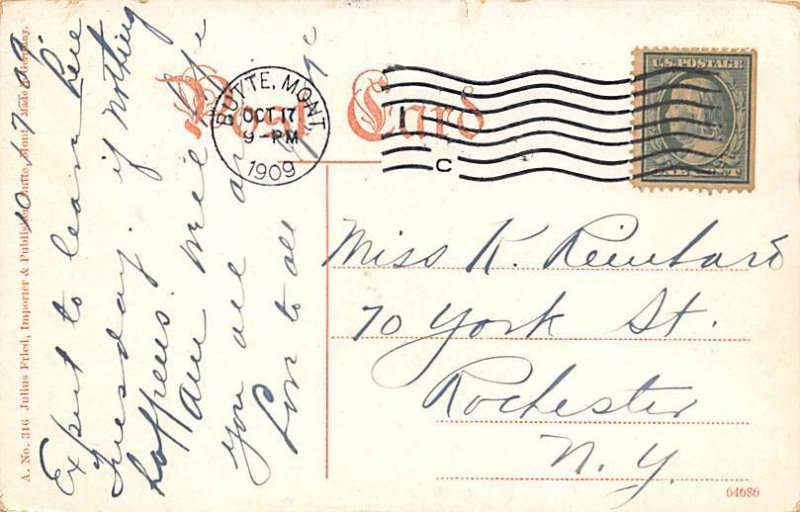 Post Card
BUTTE, MONT.
OCT 17
9-PM
1909
C
U.S. POSTAGE
10-17-09.
Expect to leave here
Tuesday. if nothing
happens. Am well hope
you all are
Love to all
Miss K. Reinhard
70 York St.
Rochester
N. Y.
A. No. 316 Julius Fried, Importer & Publisher, Butte, Mont. Made in Germany.
64686